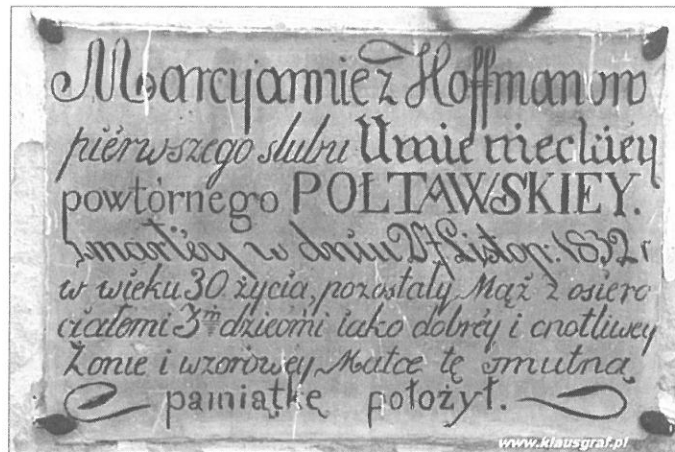 Marcyannie z Hoffmanow
piérwszego slubu Umienieckiéy
powtórnego POŁTAWSKIEY.
zmarłéy w dniu 27 Listop: 1832 r
w wieku 30 życia, pozostały Mąż z osiero
ciałemi 3m dziećmi iako dobréy i cnotliwey
Żonie i wzorowéy Matce tę smutną
pamiątkę położył.
www.klausgraf.pl